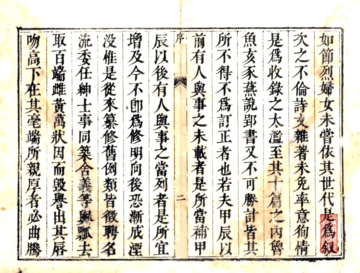 如節烈婦女未嘗依其世代是為叙
次之不倫詩文雜著未免率意狥情
是為收錄之太濫至其十篇之內魯
魚亥豕燕說郢書又不可勝計皆其
所不得不為訂正者也若夫甲辰以
前有人與事之未載者是所當補甲
序
二
辰以後有人與事之當列者是所宜
增及今不即為修明向後恐漸成湮
没惟是從來纂修舊例類皆徵聘名
流委任紳士事同築舍義等輿瓢去
取百端雌黃萬狀因而毁譽出其唇
吻高下在其毫端所親厚者必曲騰